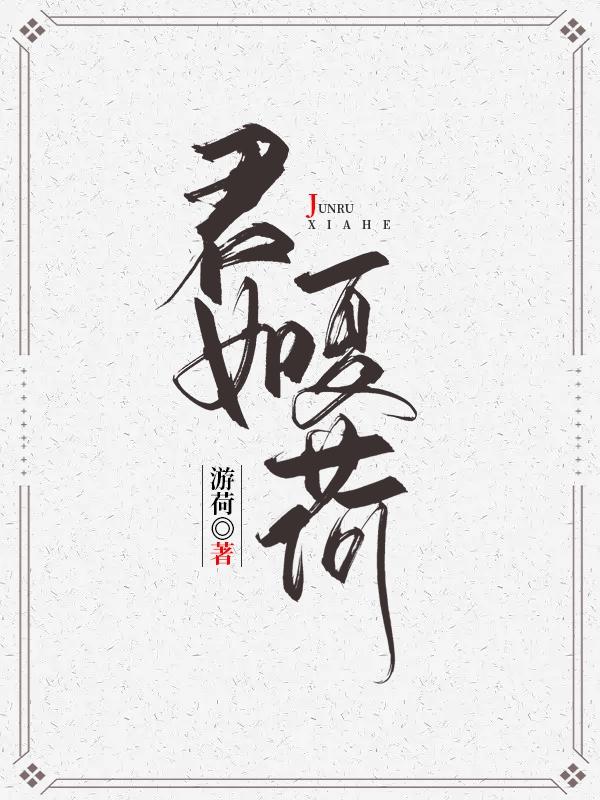 君如夏荷
JUNRU
XIAHE
游荷◎著